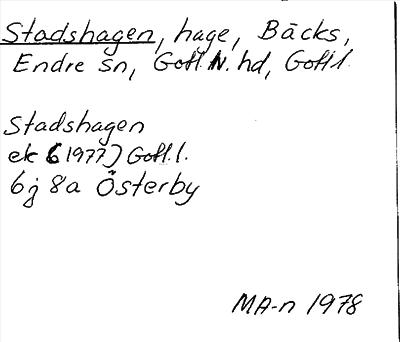 Stadshagen, hage, Bäcks,
Endre sn, Gotl. N. hd, Gotl.
Stadshagen
ek (1977) Gotl. l.
6j 8a Österby
MA-n 1978